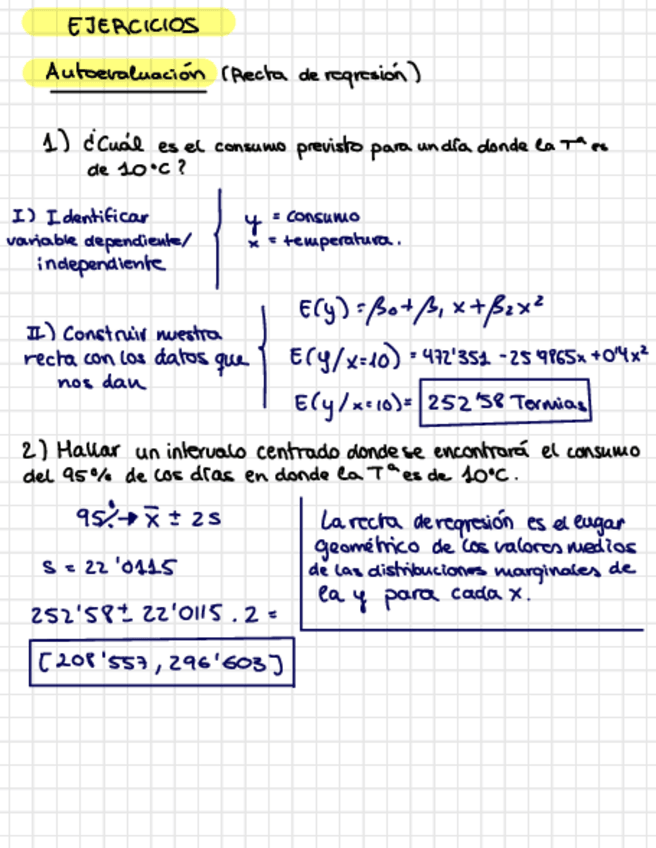 EJERCICIOS
Autoevaluación (Recta de regresión)
1) ¿Cuál es el consumo previsto para un día donde la Tª es
de 10°C?
I) Identificar
variable dependiente/
independiente
y = consumo
x = temperatura.
II) Construir nuestra
recta con los datos que
nos dan
E(y) = β₀ + β₁ x + β₂ x²
E(y/x=10) = 472'351 - 25'9865x + 0'4x²
E(y/x=10) = 252'58 Termias
2) Hallar un intervalo centrado donde se encontrará el consumo
del 95% de los días en donde la Tª es de 10°C.
95% → x̄ ± 2s
s = 22'0115
252'58 ± 22'0115 . 2 =
[208'557, 296'603]
La recta de regresión es el lugar
geométrico de los valores medios
de las distribuciones marginales de
la y para cada x.